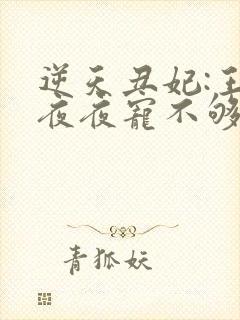 逆天丑妃:王
夜夜宠不够
青狐妖